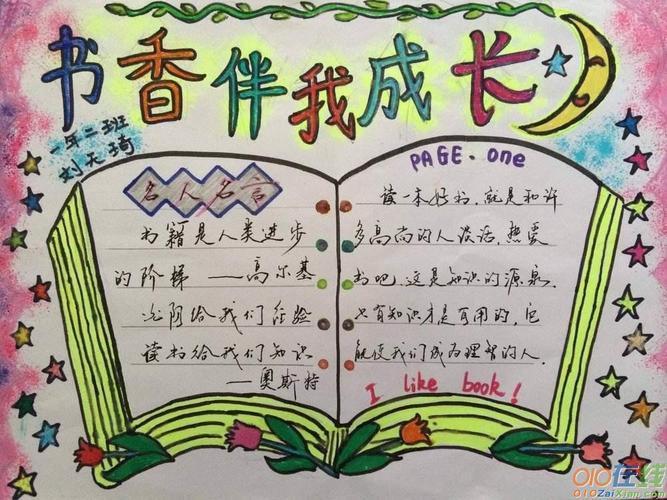 书香伴我成长
一年二班
刘天琦
名人名言
书籍是人类进步
的阶梯——高尔基
沧阿给我们经验
读书给我们知识
——奥斯特
PAGE.one
读一本好书,就是和许
多高尚的人谈话,热爱
书吧,这是知识的源泉.
只有知识才是有用的,它
能使我们成为理智的人.
I like book!
010在线
010ZaiXian.com